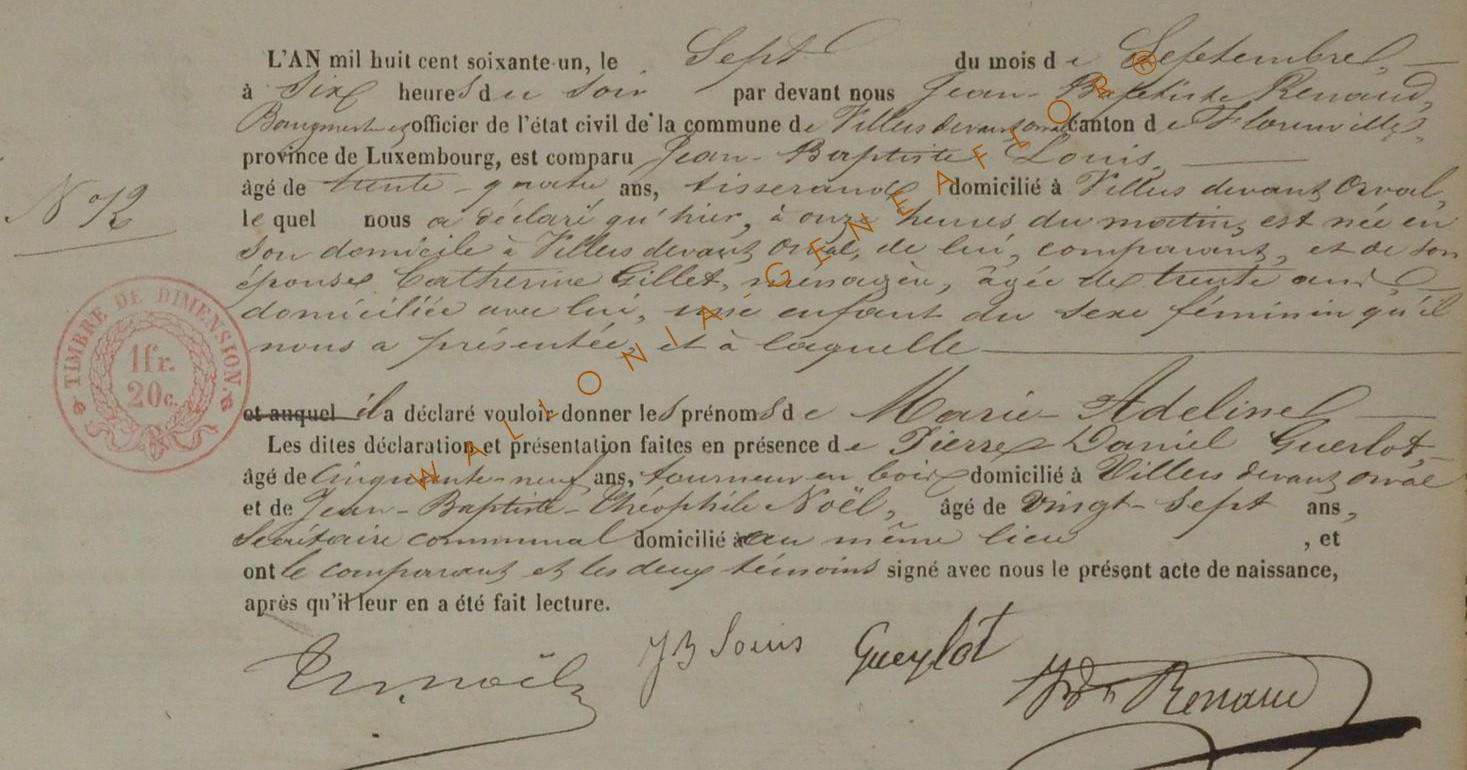 L'AN mil huit cent soixante-un, le Sept du mois de Septembre,
à Six heures du soir par devant nous Jean-Baptiste Renaud,
Bourgmestre officier de l'état civil de la commune de Villers devant orval canton de Florenville,
province de Luxembourg, est comparu Jean-Baptiste Louis,
âgé de trente-quatre ans, tisserand domicilié à Villers devant Orval,
N° 12
lequel nous a déclaré qu'hier, à onze heures du matin, est née en
son domicile à Villers devant Orval, de lui, comparant, et de son
épouse Catherine Gillet, menagère, âgée de trente ans,
domiciliée avec lui, une enfant du sexe féminin qu'il
nous a présentée, et à laquelle
TIMBRE DE DIMENSION.
1fr.
20c.
et auquel il a déclaré vouloir donner les prénoms de Marie-Adeline
Les dites déclaration et présentation faites en présence de Pierre Daniel Guerlot,
âgé de Cinquante-neuf ans, tourneur en bois domicilié à Villers devant orval
et de Jean-Baptiste-Théophile Noël, âgé de vingt-sept ans,
Secrétaire communal domicilié au même lieu, et
ont le comparant et les deux témoins signé avec nous le présent acte de naissance,
après qu'il leur en a été fait lecture.
JB Louis Gueylot
noël
Renaud
WALLONIA-GENEAFLORE®